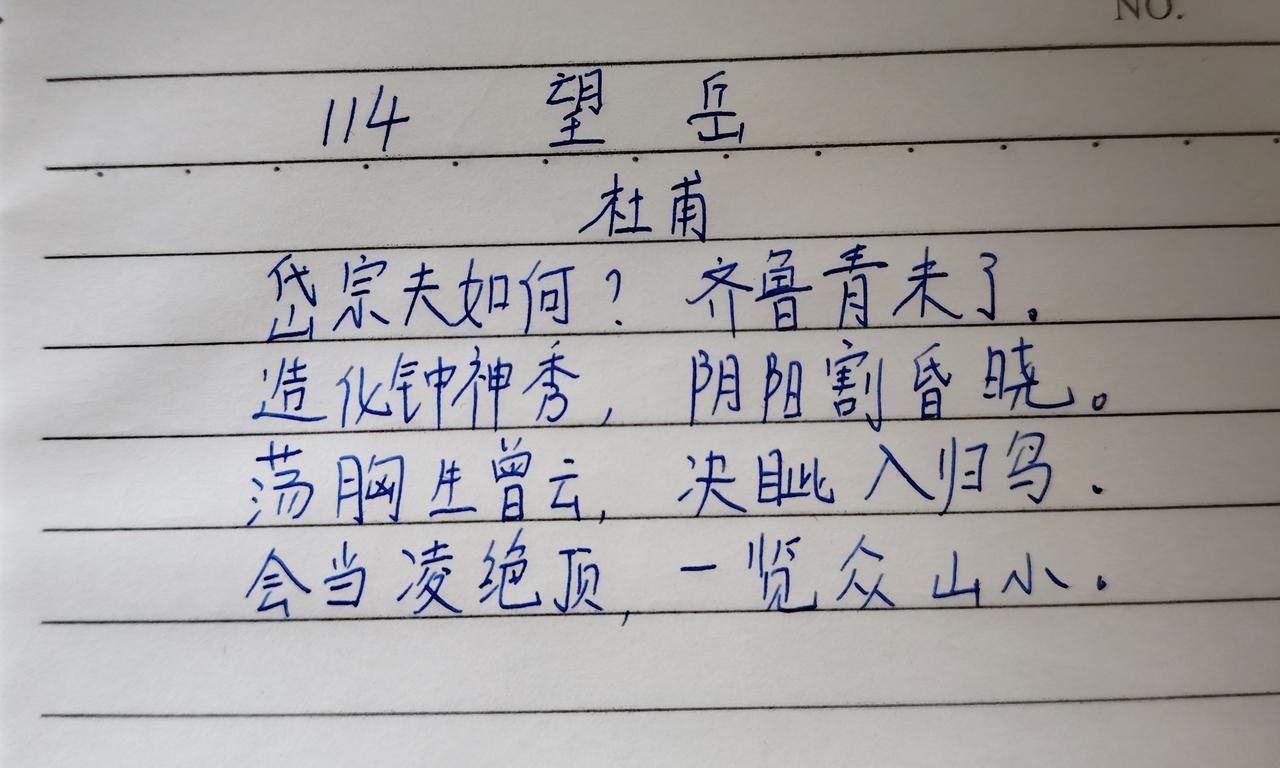 NO.
114 望岳
杜甫
岱宗夫如何? 齐鲁青未了.
造化钟神秀, 阴阳割昏晓。
荡胸生曾云, 决眦入归鸟.
会当凌绝顶, 一览众山小.